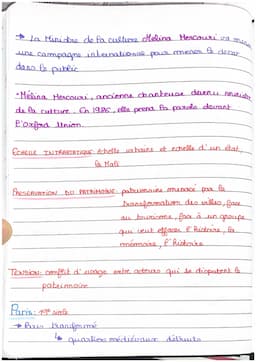 → La Ministre de la culture Mélina Mercouri va mener
une campagne internationale pour mener le débat
dans le public
*Mélina Mercouri, ancienne chanteuse devenu ministre
de la culture. En 1986, elle prend la parole devant
l'Oxford Union.
ÉCHELLE INTRAÉTATIQUE: échelle urbaine et échelle d'un état,
le Mali
PRÉSERVATION DU PATRIMOINE: patrimoine menacé par la
transformation des villes, face
au tourisme, face à un groupe
qui veut effacer l'histoire, la
mémoire, l'histoire
TENSION: conflit d'usage entre acteurs qui se disputent le
patrimoine
Paris: 19e siècle
→ Paris transformé
↳ quartiers médiévaux détruits